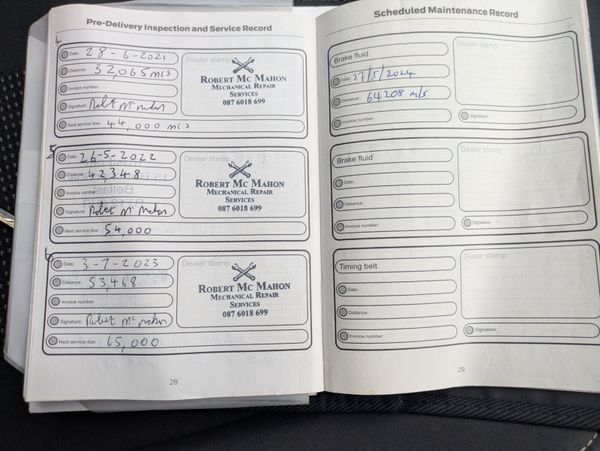 Pre-Delivery Inspection and Service Record
Date: 28-6-2021
Distance: 32,065 mls
Invoice number:
Signature: Robt Mc Mahon
Next service due: 44,000 mls
Dealer stamp
ROBERT MC MAHON
MECHANICAL REPAIR
SERVICES
087 6018 699
Date: 26-5-2022
Distance: 42,348
Invoice number:
Signature: Robert Mc Mahon
Next service due: 54,000
Dealer stamp
ROBERT MC MAHON
MECHANICAL REPAIR
SERVICES
087 6018 699
6
Date: 3-7-2023
Distance: 53,468
Invoice number:
Signature: Robert Mc Mahon
Next service due: 65,000
Dealer stamp
ROBERT MC MAHON
MECHANICAL REPAIR
SERVICES
087 6018 699
28
Scheduled Maintenance Record
Brake fluid
Date: 27/5/2024
Distance: 64208 m/s
Invoice number:
Dealer stamp
Signature:
Brake fluid
Date:
Distance:
Invoice number:
Dealer stamp
Signature:
Timing belt
Date:
Distance:
Invoice number:
Dealer stamp
Signature:
29